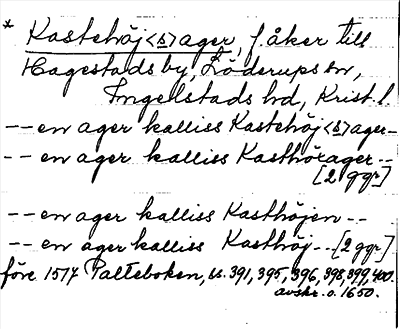 * Kastehöj<s>ager, f. åker till
Hagestads by, Löderups sn,
Ingelstads hd, Krist. l.
-- en ager kalliss Kastehöj<s>ager --
-- en ager kalliss Kasthörager --
[2 ggr]
-- en ager kalliss Kasthöjen --
-- en ager kalliss Kasthöj -- [2 ggr]
före 1517 Palteboken, ss. 391, 395, 396, 398, 399, 400.
avskr. o. 1650.